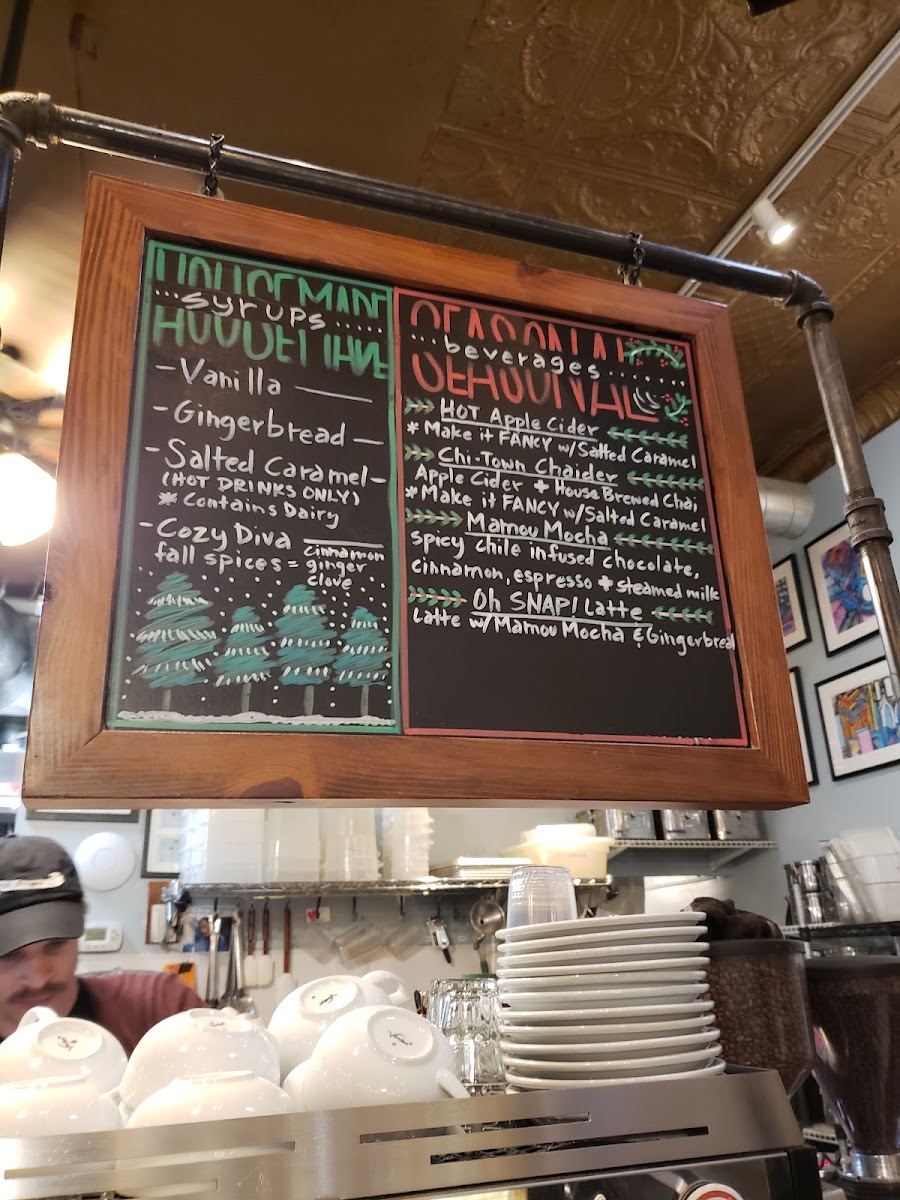 HOUSEMADE
...syrups.....
- Vanilla
- Gingerbread -
- Salted Caramel -
(HOT DRINKS ONLY)
* Contains Dairy
- Cozy Diva
fall spices = cinnamon
ginger
clove
SEASONAL
...beverages.......
HOT Apple Cider
* Make it FANCY w/Salted Caramel
Chi-Town Chaider
Apple Cider + House Brewed Chai
* Make it FANCY w/Salted Caramel
Mamou Mocha
spicy chile infused chocolate,
cinnamon, espresso + steamed milk
Oh SNAP! Latte
Latte w/Mamou Mocha & Gingerbread